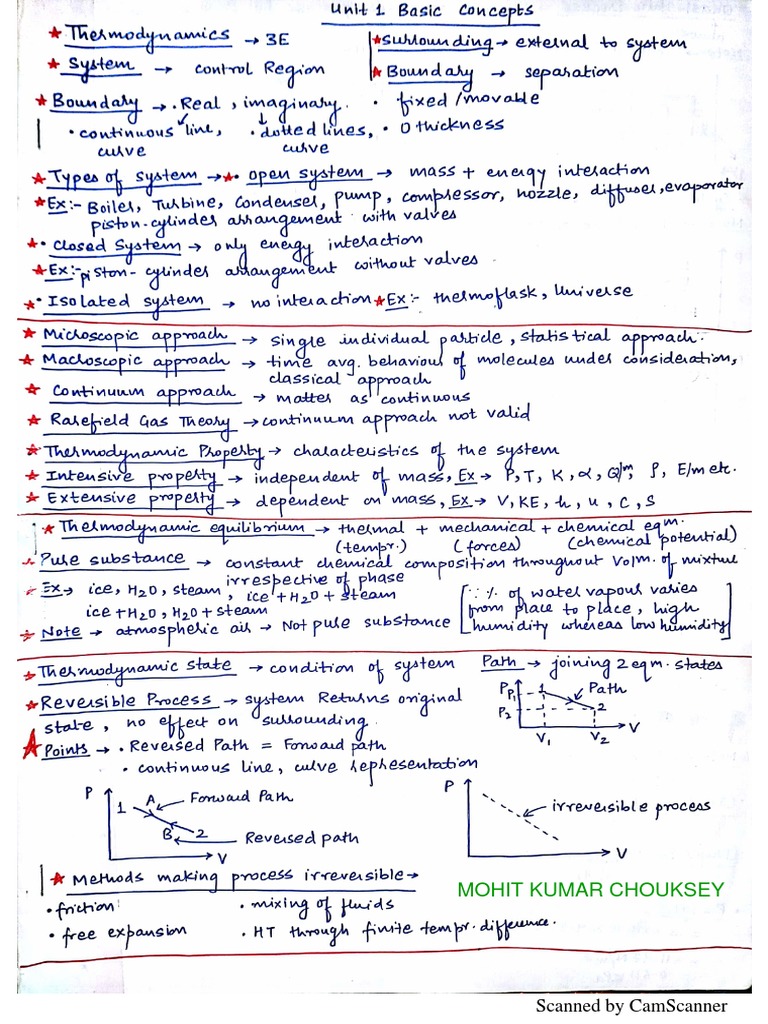 Unit 1 Basic Concepts
★ Thermodynamics → 3E
★ Surrounding → external to system
★ System → control Region
★ Boundary → separation
★ Boundary → • Real, imaginary. • fixed/movable
• continuous line, • dotted lines, • 0 thickness
curve curve
★ Types of system → ★ • open system → mass + energy interaction
★ Ex:- Boiler, Turbine, Condenser, pump, compressor, nozzle, diffuser, evaporator
piston-cylinder arrangement with valves
★ • Closed System → only energy interaction
★ Ex:- piston-cylinder arrangement without valves.
★ • Isolated system → no interaction ★ Ex:- thermoflask, Universe
★ Microscopic approach → single individual particle, statistical approach.
★ Macroscopic approach → time avg. behaviour of molecules under consideration,
classical approach
★ Continuum approach → matter as continuous
★ Rarefield Gas Theory → continuum approach not valid
★ Thermodynamic Property → characteristics of the system
★ Intensive property → independent of mass, Ex → P, T, K, α, Q/m, ρ, E/m etc.
★ Extensive property → dependent on mass, Ex → V, KE, h, u, C, S
★ Thermodynamic equilibrium → thermal + mechanical + chemical eqm.
(tempr.) (forces) (chemical potential)
★ Pure substance → constant chemical composition throughout Volm. of mixture
irrespective of phase
★ Ex → ice, H2O, steam, ice + H2O + steam
ice + H2O, H2O + steam
[∵ % of water vapour varies
from place to place, high
humidity whereas low humidity]
★ Note → atmospheric air → Not pure substance
★ Thermodynamic state → condition of system
Path → joining 2 eqm. states
★ Reversible Process → system Returns original
state, no effect on surrounding.
P P1 1 Path
P2 2
V1 V2 V
★ Points → • Reversed Path = Forward path
• continuous line, curve representation
P 1 A Forward Path
B 2 Reversed path
V
P
irreversible process
V
★ Methods making process irreversible →
MOHIT KUMAR CHOUKSEY
• friction • mixing of fluids
• free expansion • HT through finite tempr. difference.
Scanned by CamScanner